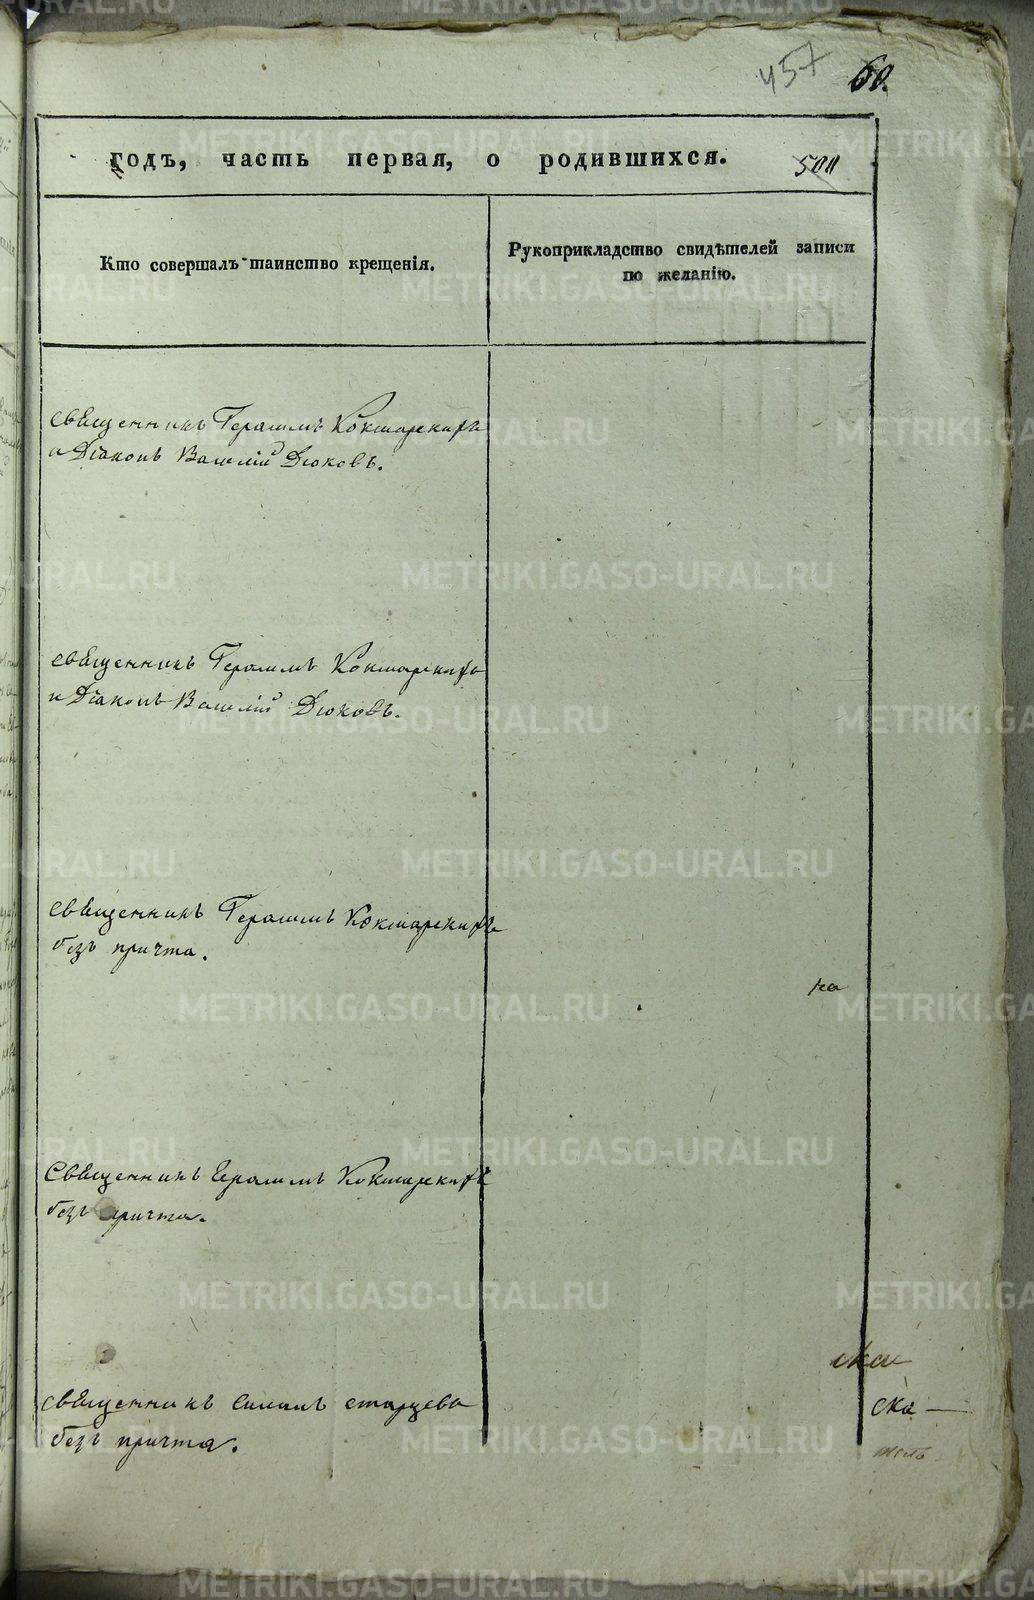 457 60.
годъ, часть первая, о родившихся. 500
Кто совершалъ таинство крещенія.
Рукоприкладство свидѣтелей записи
по желанію.
священникъ Герасимъ Кокшарскихъ
и Діаконъ Василій Дюковъ.
священникъ Герасимъ Кокшарскихъ
и Діаконъ Василій Дюковъ.
священникъ Герасимъ Кокшарскихъ
безъ причта.
ка
Священникъ Герасимъ Кокшарскихъ
безъ причта.
священникъ Симонъ старцевъ
безъ причта.
ска
METRIKI.GASO-URAL.RU